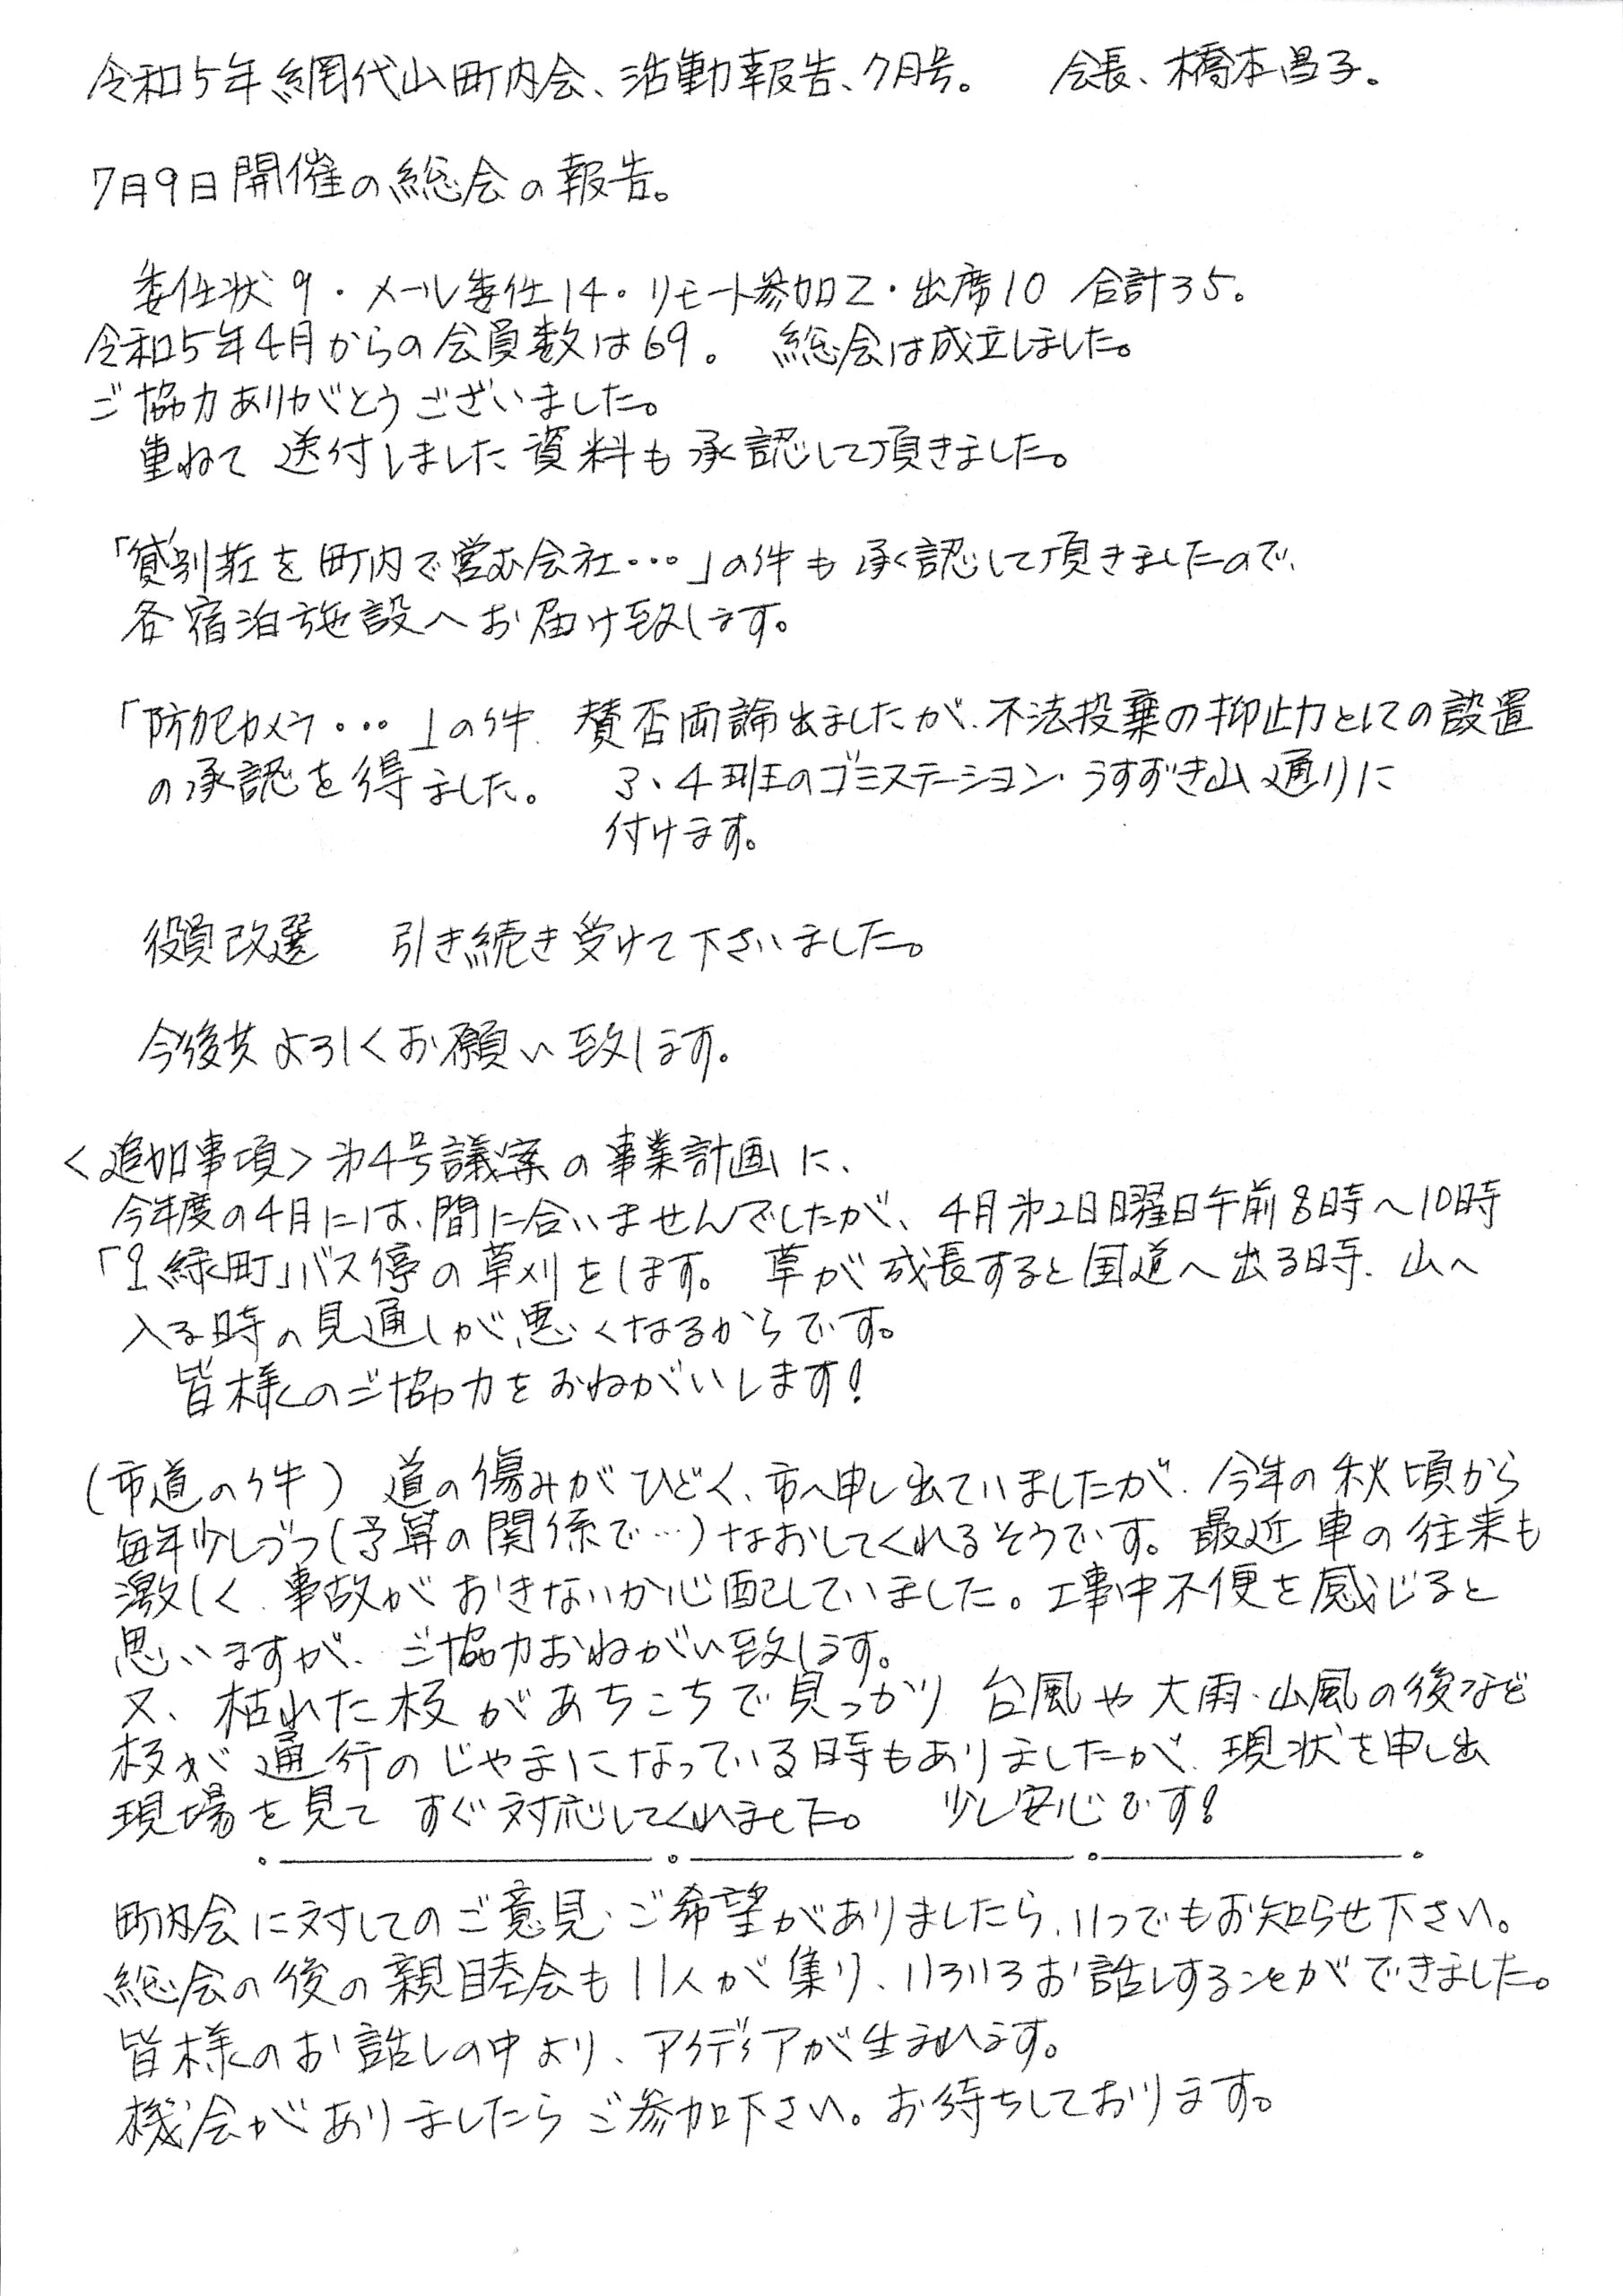 令和5年網代山町内会、活動報告、7月号。 会長、橋本昌子。
7月9日開催の総会の報告。
委任状9・メール委任14・リモート参加2・出席10 合計35。
令和5年4月からの会員数は69。 総会は成立しました。
ご協力ありがとうございました。
重ねて送付しました資料も承認して頂きました。
「貸別荘を町内で営む会社・・・」の件も承く認して頂きましたので、
各宿泊施設へお届け致します。
「防犯カメラ・・・」の件、賛否両論出ましたが、不法投棄の抑止力としての設置
の承認を得ました。 3、4班のゴミステーション・うすずき山通りに
付けます。
役員改選 引き続き受けて下さいました。
今後共よろしくお願い致します。
<追加事項>第4号議案の事業計画に、
今年度の4月には、間に合いませんでしたが、4月第2日曜日午前8時〜10時
「緑町」バス停の草刈をします。 草が成長すると国道へ出る時、山へ
入る時の見通しが悪くなるからです。
皆様のご協力をおねがいします!
(市道の件) 道の傷みがひどく、市へ申し出ていましたが、今年の秋頃から
毎年少しづつ(予算の関係で…)なおしてくれるそうです。最近車の往来も
激しく、事故がおきないか心配していました。工事中不便を感じると
思いますが、ご協力おねがい致します。
又、枯れた枝があちこちで見つかり、台風や大雨・山風の後など
枝が通行のじゃまになっている時もありましたが、現状を申し出
現場を見てすぐ対応してくれました。 少し安心です!
町内会に対してのご意見・ご希望がありましたら、いつでもお知らせ下さい。
総会の後の親睦会も11人が集り、いろいろお話しすることができました。
皆様のお話しの中より、アイディアが生まれます。
機会がありましたらご参加下さい。お待ちしております。